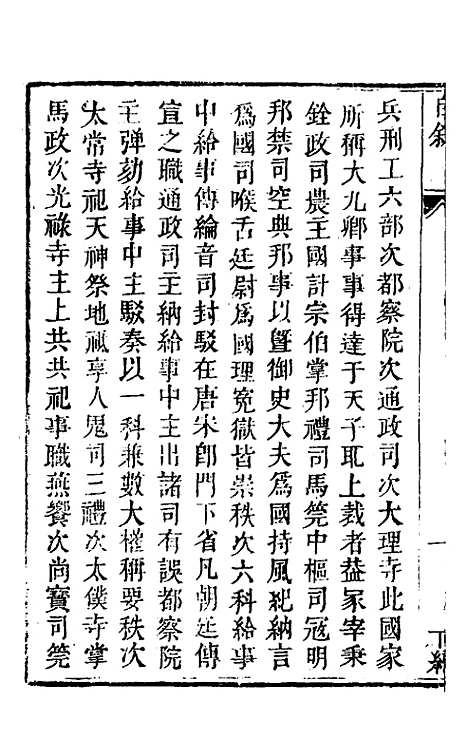 兵刑工六部次都察院次通政司次大理寺此國家
所稱大九卿事事得達于天子取上裁者葢冢宰秉
銓政司農主國計宗伯掌邦禮司馬筦中樞司寇明
邦禁司空典邦事以曁御史大夫爲國持風紀納言
爲國司喉舌廷尉爲國理寃獄皆崇秩次六科給事
中給事傳綸音司封駁在唐宋卽門下省凡朝廷傳
宣之職通政司主納給事中主出諸司有誤都察院
主弹劾給事中主駁奏以一科兼數大權稱要秩次
太常寺祀天神祭地祇享人鬼司三禮次太僕寺掌
馬政次光祿寺主上共共祀事職燕饗次尚寶司筦